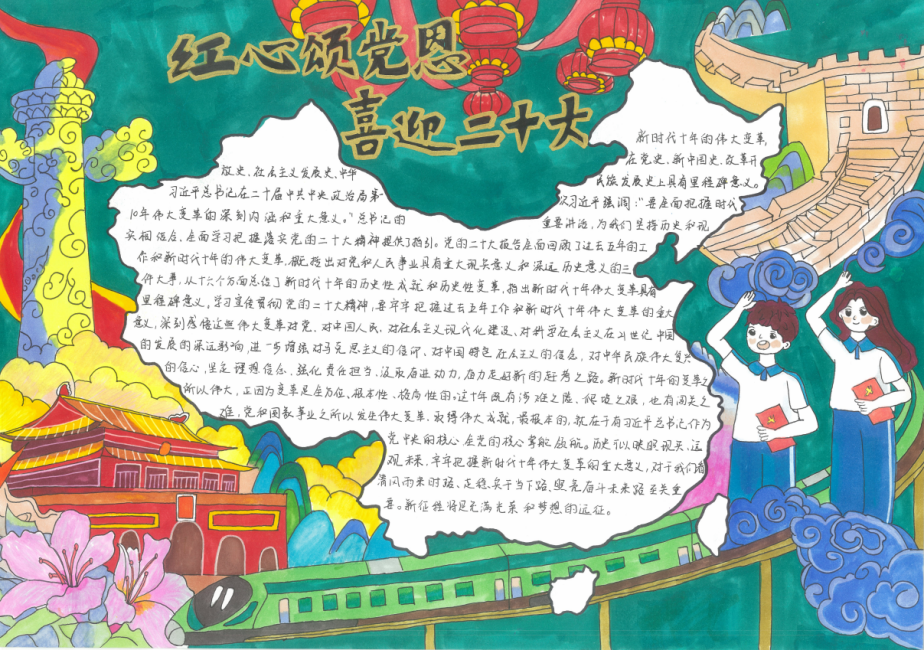 红心颂党恩
喜迎二十大
新时代十年的伟大变革,
在党史、新中国史、改革开
放史、社会主义发展史、中华
民族发展史上具有里程碑意义。
习近平总书记在二十届中共中央政治局第一
次习近平强调:"要全面把握时代
10年伟大变革的深刻内涵和重大意义。"总书记的
重要讲话,为我们坚持历史和现
实相结合、全面学习把握落实党的二十大精神提供了指引。党的二十大报告全面回顾了过去五年的工
作和新时代十年的伟大变革,概括指出对党和人民事业具有重大现实意义和深远历史意义的三
件大事,从十六个方面总结了新时代十年的历史性成就和历史性变革,指出新时代十年伟大变革具有
里程碑意义,学习宣传贯彻党的二十大精神,要牢牢把握过去五年工作和新时代十年伟大变革的重大
意义,深刻感悟这些伟大变革对党、对中国人民、对社会主义现代化建设、对科学社会主义在21世纪中国
的发展的深远影响,进一步增强对马克思主义的信仰、对中国特色社会主义的信念,对中华民族伟大复兴
的信心,坚定理想信念,强化责任担当、汲取奋进动力,奋力走好新的赶考之路。新时代十年的变革之
所以伟大,正因为变革是全方位、根本性、格局性的。这十年既有涉滩之险、爬坡之艰,也有闯关之
难,党和国家事业之所以发生伟大变革、取得伟大成就,最根本的,就在于有习近平总书记作为
党中央的核心、全党的核心掌舵领航。历史可以映照现实、远
观未来,牢牢把握新时代十年伟大变革的重大意义,对于我们看
清闪而来时路、走稳实干当下路、照亮奋斗未来路至关重
要。新征程将是充满光荣和梦想的远征。